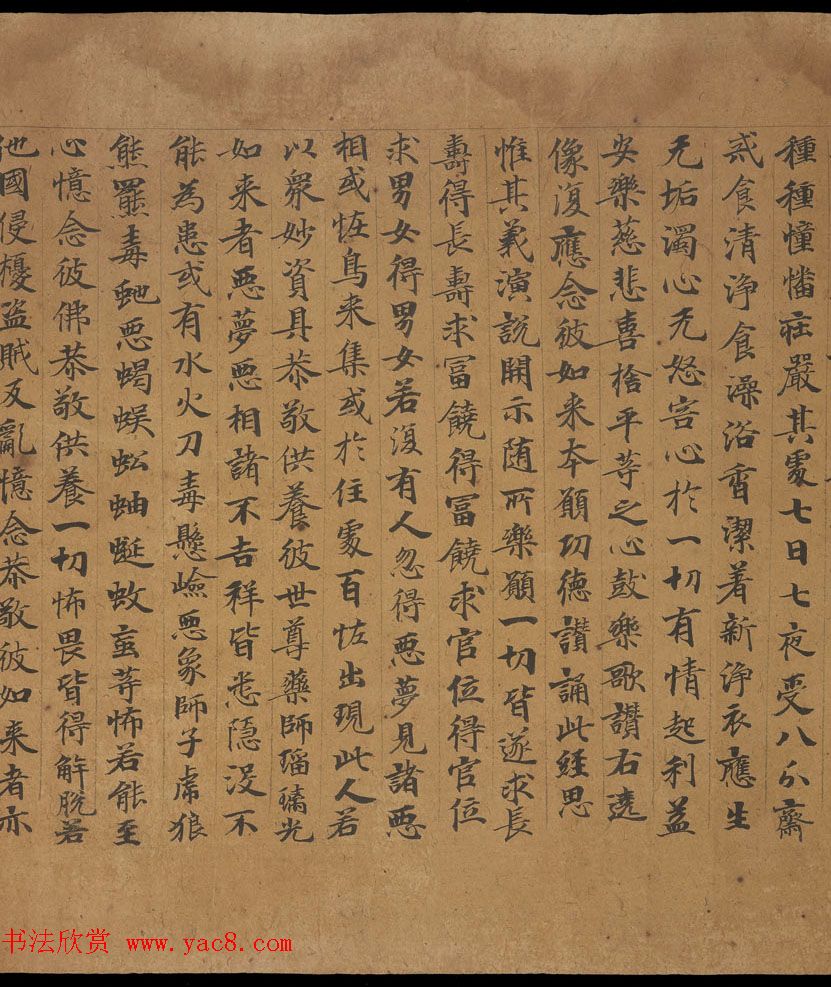 種種幢幡莊嚴其處七日七夜受八分齋
戒食清淨食澡浴香潔著新淨衣應生
无垢濁心无怒害心於一切有情起利益
安樂慈悲喜捨平等之心鼓樂歌讚右遶
像復應念彼如来夲願功德讚誦此經思
惟其義演說開示随所樂願一切皆遂求長
壽得長壽求冨饒得冨饒求官位得官位
求男女得男女若復有人忽得惡夢見諸惡
相或恠鳥来集或於住處百恠出現此人若
以衆妙資具恭敬供養彼世尊藥師瑠璃光
如来者惡夢惡相諸不吉祥皆悉隱沒不
能為患或有水火刀毒懸嶮惡象師子虎狼
熊羆毒虵惡蝎蜈蚣蚰蜒蚊蝱等怖若能至
心憶念彼佛恭敬供養一切怖畏皆得解脫若
他國侵擾盜賊反亂憶念恭敬彼如来者亦
书法欣赏 www.yac8.com